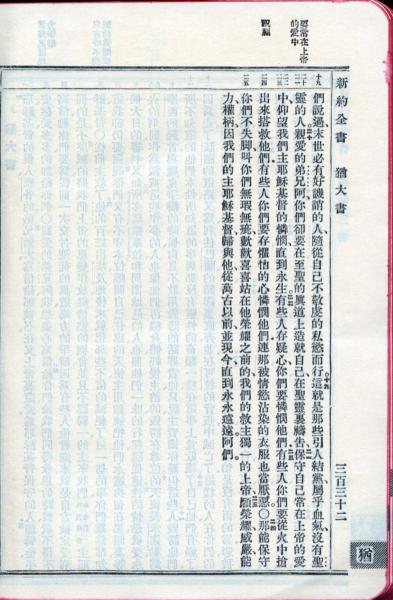 新約全書 猶大書
三百三十二
猶
要常在上帝
的愛中
祝福
十九
二十
二一
二二
二三
二四
二五
們說過末世必有好譏誚的人、隨從自己不敬虔的私慾而行、這就是那些引人結黨、屬乎血氣、沒有聖
靈的人、親愛的弟兄阿、你們卻要在至聖的眞道上造就自己、在聖靈裏禱告、保守自己常在上帝的愛
中、仰望我們主耶穌基督的憐憫、直到永生、有些人存疑心、你們要憐憫他們、有些人你們要從火中搶
出來搭救他們、有些人你們要存懼怕的心憐憫他們、連那被情慾沾染的衣服也當厭惡、○那能保守
你們不失脚、叫你們無瑕無疵、歡歡喜喜站在他榮耀之前的、我們的救主獨一的上帝、願榮耀威嚴能
力權柄、因我們的主耶穌基督、歸與他、從萬古以前、並現今、直到永永遠遠、阿們。